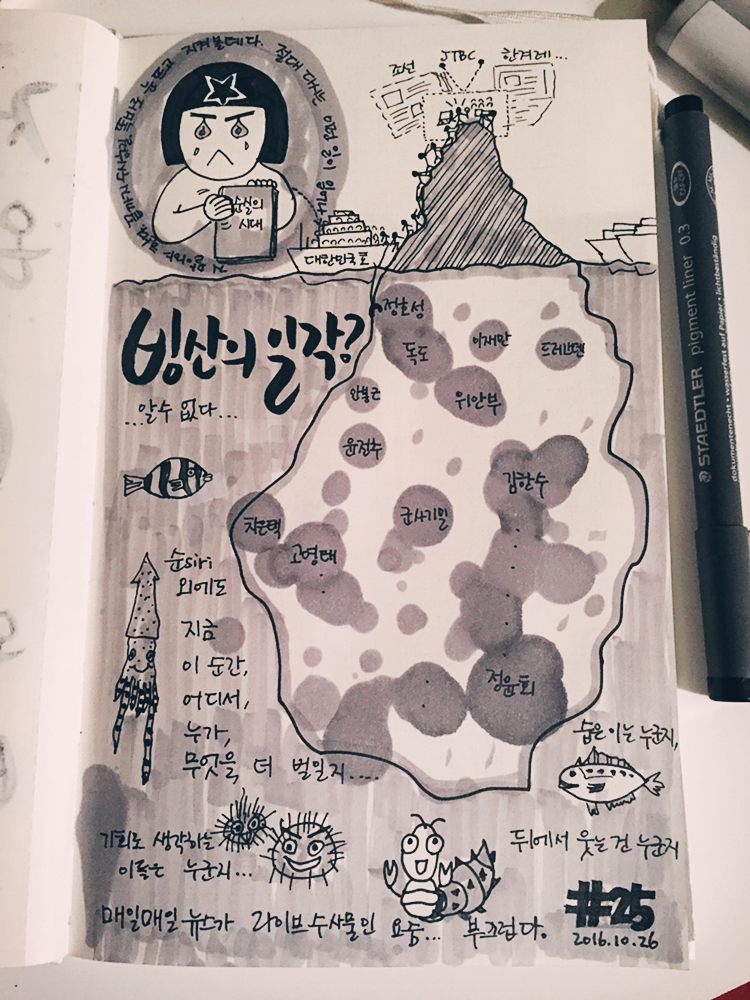 눈 뜨고 지켜볼테다. 절대 다시는 이런 일이 일어나
조선
JTBC
한겨레...
순실의
시대
대한민국호
빙산의 일각?
...알수 없다...
정호성
독도
이재만
드레스덴
안봉근
위안부
윤전추
김한수
차은택
고영태
군사기밀
정윤회
순siri
외에도
지금
이 순간,
어디서,
누가,
무엇을 더 벌일지....
숨은 이는 누군지,
뒤에서 웃는 건 누군지
기회로 생각하는
이들은 누군지...
매일매일 뉴스가 라이브수사물인 요즘... 부끄럽다.
#25
2016.10.26
STAEDTLER pigment liner 0.3
dokumentenecht • wasserfest auf Papier • lichtbeständig